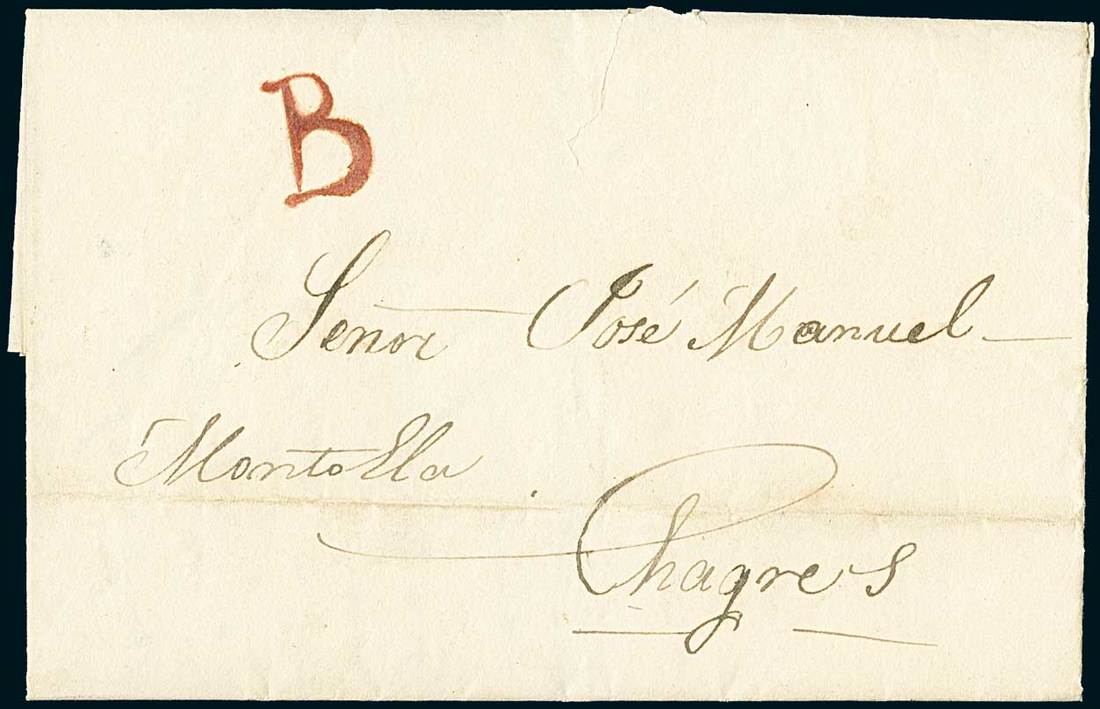 B
Señor José Manuel
Montoella
Chagres